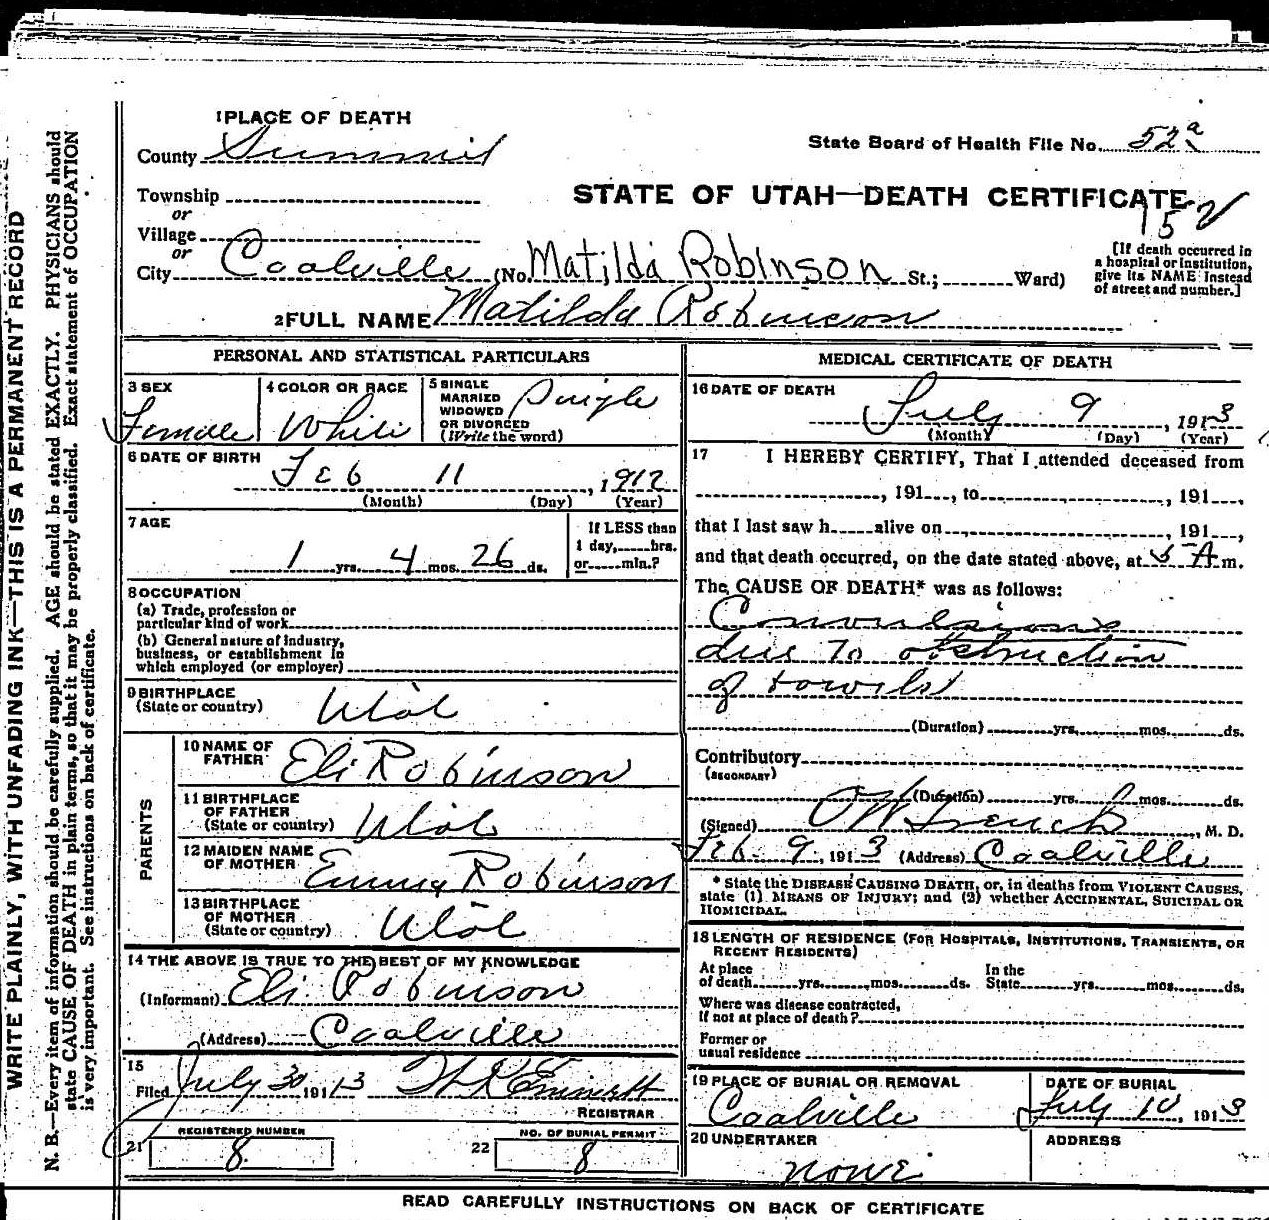 WRITE PLAINLY, WITH UNFADING INK—THIS IS A PERMANENT RECORD
N. B.—Every item of information should be carefully supplied. AGE should be stated EXACTLY. PHYSICIANS should
state CAUSE OF DEATH in plain terms, so that it may be properly classified. Exact statement of OCCUPATION
is very important. See instructions on back of certificate.
1 PLACE OF DEATH
County Summit
State Board of Health File No. 52a
Township
or
Village
or
City Coalville (No. Matilda Robinson St.; Ward)
STATE OF UTAH—DEATH CERTIFICATE
152
[If death occurred in
a hospital or institution,
give its NAME instead
of street and number.]
2 FULL NAME Matilda Robinson
PERSONAL AND STATISTICAL PARTICULARS
3 SEX
Female
4 COLOR OR RACE
White
5 SINGLE
MARRIED
WIDOWED
OR DIVORCED
(Write the word)
Single
6 DATE OF BIRTH
Feb 11, 1912
(Month) (Day) (Year)
7 AGE
1 yrs. 4 mos. 26 ds.
If LESS than
1 day, hrs.
or min.?
8 OCCUPATION
(a) Trade, profession or
particular kind of work
(b) General nature of industry,
business, or establishment in
which employed (or employer)
9 BIRTHPLACE
(State or country) Utah
PARENTS
10 NAME OF
FATHER Eli Robinson
11 BIRTHPLACE
OF FATHER
(State or country) Utah
12 MAIDEN NAME
OF MOTHER Emma Robinson
13 BIRTHPLACE
OF MOTHER
(State or country) Utah
14 THE ABOVE IS TRUE TO THE BEST OF MY KNOWLEDGE
(Informant) Eli Robinson
(Address) Coalville
15
Filed July 30 1913 H K Emmett
REGISTRAR
21 REGISTERED NUMBER
8
22 NO. OF BURIAL PERMIT
8
MEDICAL CERTIFICATE OF DEATH
16 DATE OF DEATH
July 9, 1913
(Month) (Day) (Year)
17 I HEREBY CERTIFY, That I attended deceased from
, 191 , to , 191 ,
that I last saw h alive on , 191 ,
and that death occurred, on the date stated above, at A m.
The CAUSE OF DEATH* was as follows:
Convulsions
due to obstruction
of bowels
(Duration) yrs. mos. ds.
Contributory
(SECONDARY)
(Duration) yrs. mos. ds.
(Signed) French, M. D.
Feb. 9, 1913 (Address) Coalville
* State the DISEASE CAUSING DEATH, or, in deaths from VIOLENT CAUSES,
state (1) MEANS OF INJURY; and (2) whether ACCIDENTAL, SUICIDAL OR
HOMICIDAL.
18 LENGTH OF RESIDENCE (FOR HOSPITALS, INSTITUTIONS, TRANSIENTS, OR
RECENT RESIDENTS)
At place
of death yrs. mos. ds.
In the
State yrs. mos. ds.
Where was disease contracted,
if not at place of death?
Former or
usual residence
19 PLACE OF BURIAL OR REMOVAL
Coalville
DATE OF BURIAL
July 10, 1913
20 UNDERTAKER
none
ADDRESS
READ CAREFULLY INSTRUCTIONS ON BACK OF CERTIFICATE